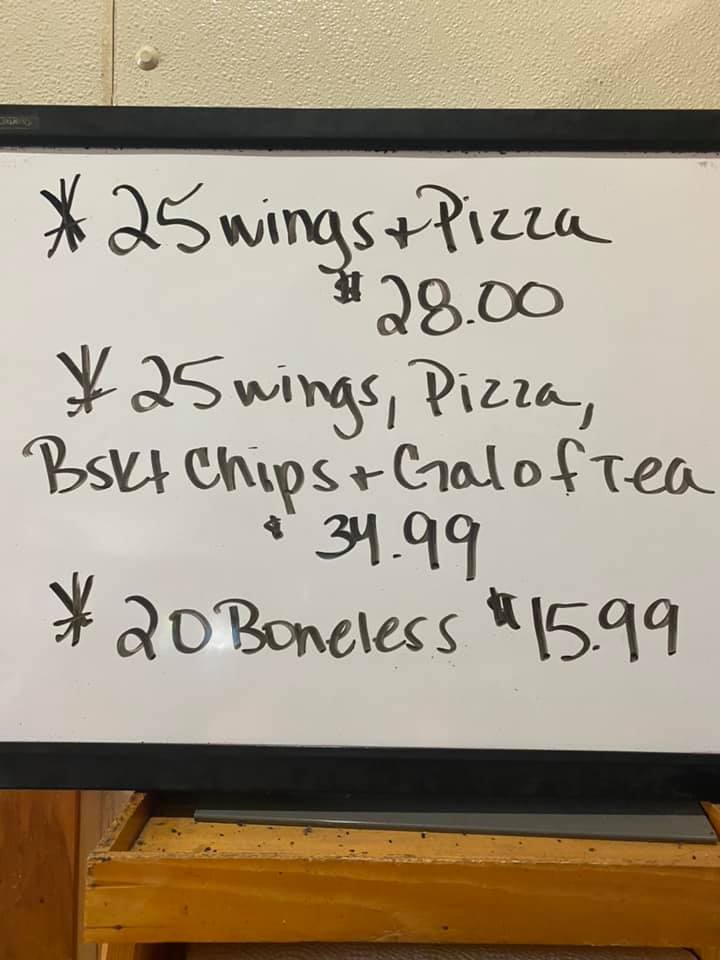 * 25 wings + Pizza
$28.00
* 25 wings, Pizza,
Bskt Chips + Gal of Tea
$34.99
* 20 Boneless $15.99